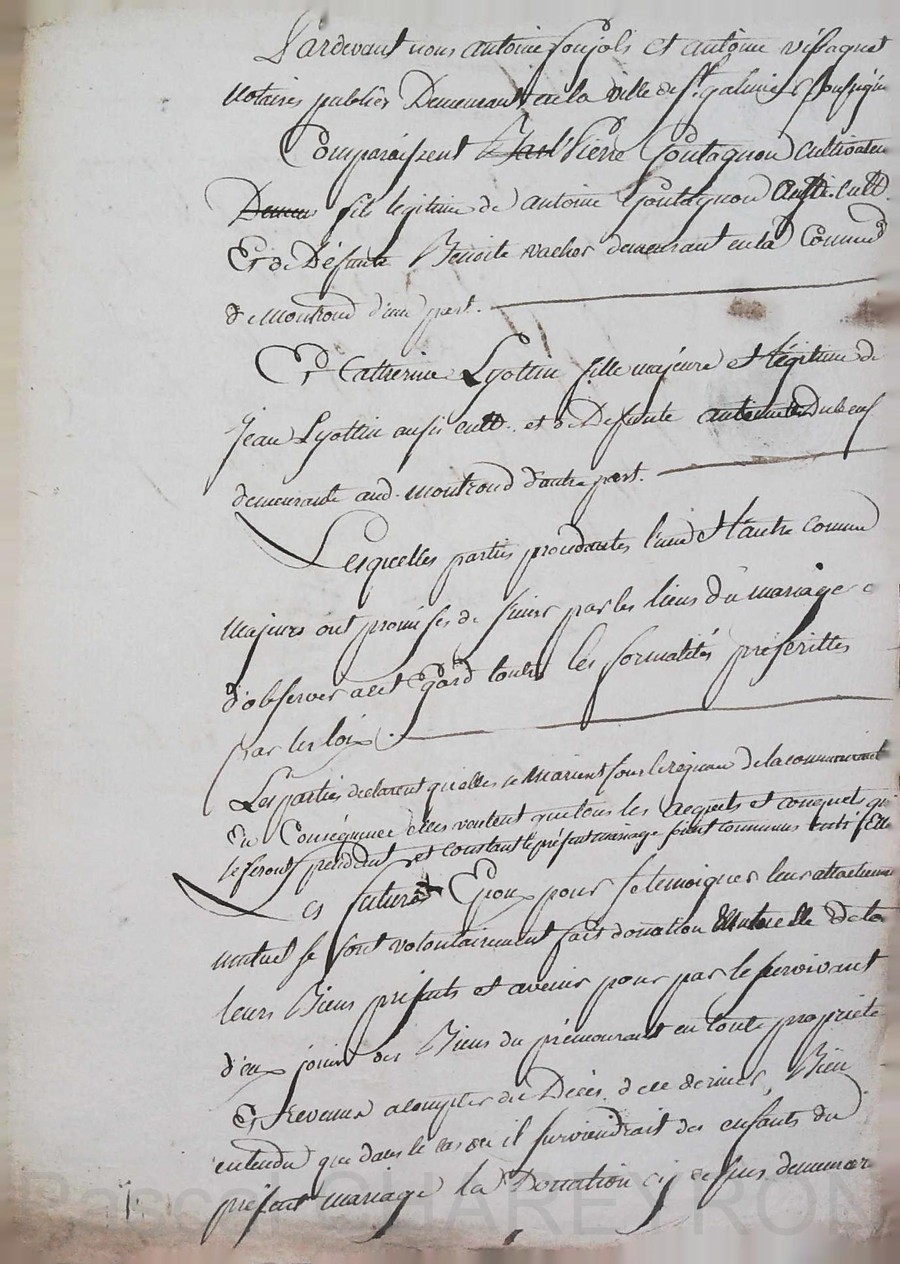 Pardevant nous antoine soujols et antoine vissaguet
Notaires publics Demeurant en la ville de St. galmier soussignés
Comparaissent Jean Pierre Goutagnon Cultivateur
Demeu fils legitime de antoine Goutagnon cult.
Et de Défunte Benoite vacher demeurant en la Commune
de Montrond d'une part.
Et Catherine Lyottin fille majeure et légitime de
Jean Lyottin aussi cult. et de Defunte antoinette Dubeuf
demeurante aud. montrond d'autre part.
Lesquelles parties procédantes l'une et l'autre comme
Majeures ont promises de s'unir par les liens du mariage
d'observer a cet Egard toutes les formalités préscrittes
par les loix.
Les parties declarent qu'elles se Marient sous le régime de la communauté
En Conséquence elles veulent que tous les acquets et conquets qui
se feront pendant et constant le présent mariage soient communs entr'Elles
Les futures Epoux pour se temoigner leur attachement
mutuel se sont volontairement fait donation Mutuelle de tous
leurs Biens présents et avenir pour par le survivant
d'eux jouir des Biens du prémourant en toute propriété
Et Revenus a compter du Déces de ce dernier, Bien
entendu que dans le cas ou il surviendrait des enfants du
présent mariage la Donation cy dessus demeurer
Pascal CHAREYRON